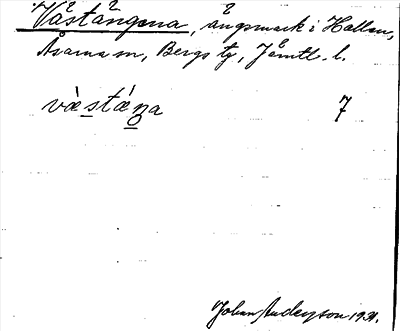 Västängena, ängsmark i Hallen,
Åsarna sn, Bergs tg, Jämtl. l.
væ̀stǽŋa 7
Johan Anderson 1931.